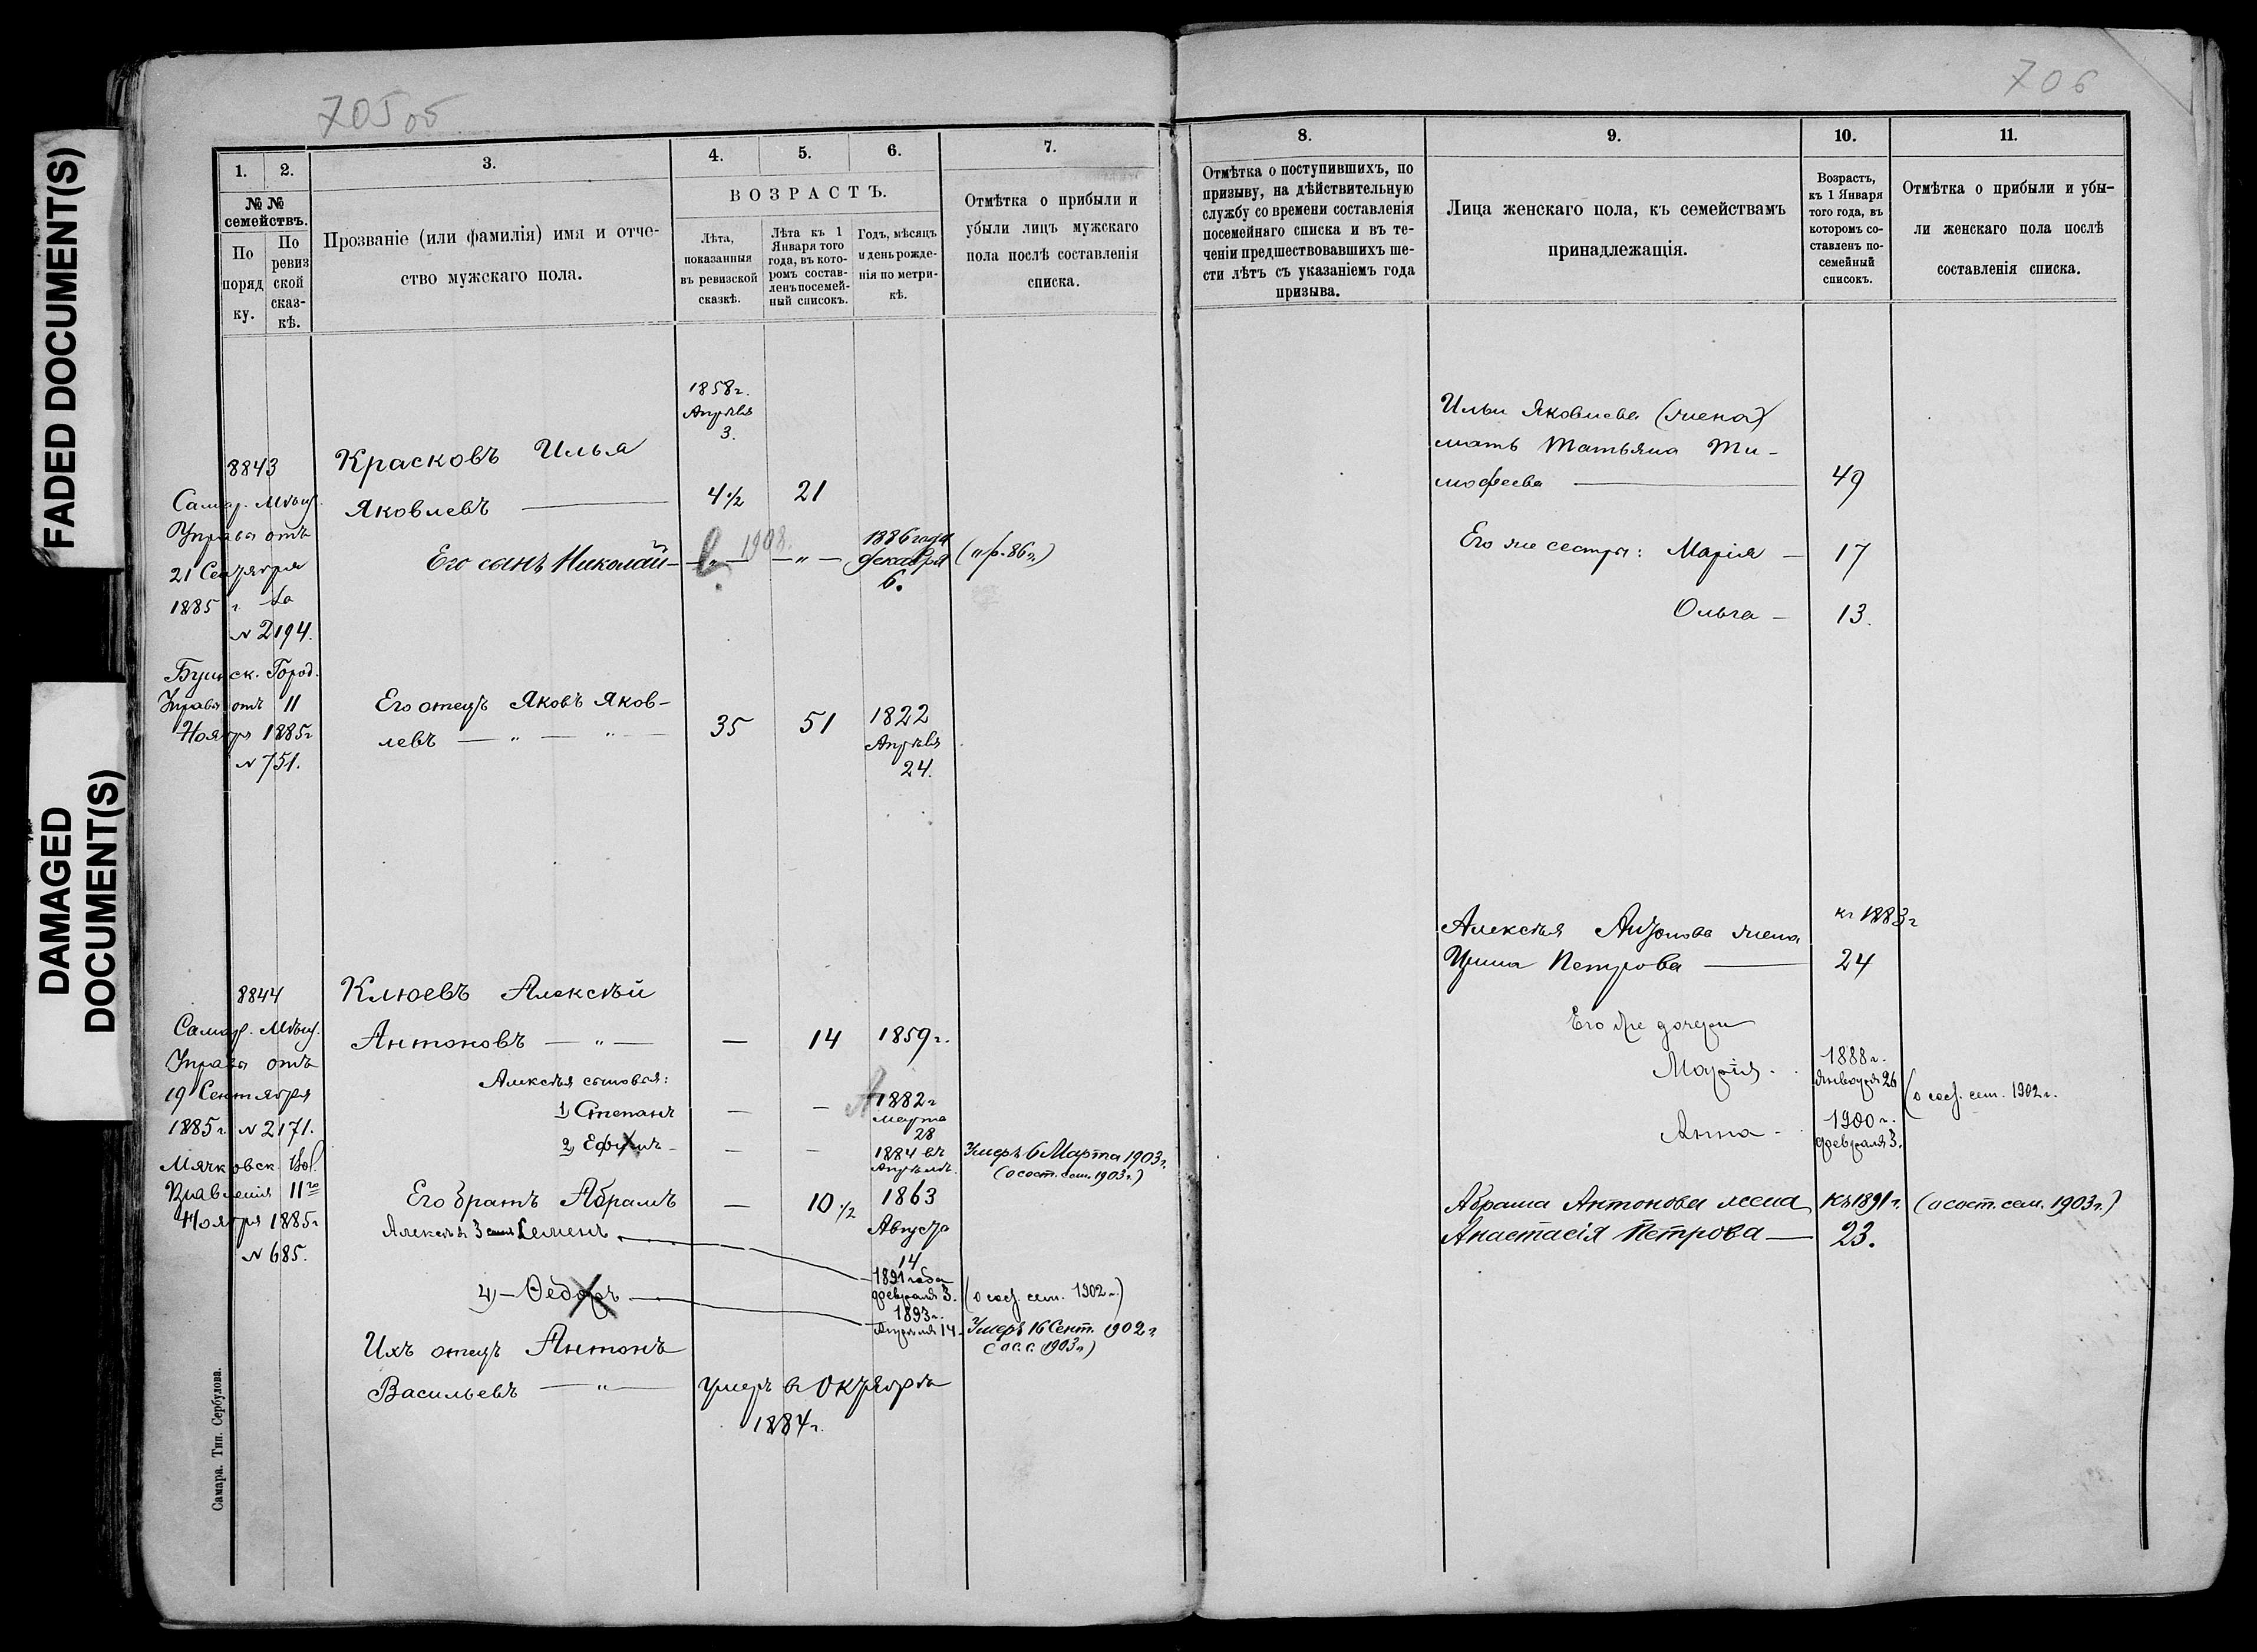 FADED DOCUMENT(S)
DAMAGED
DOCUMENT(S)
705 об
1.
2.
3.
4.
5.
6.
7.
№ №
семействъ.
По
поряд
ку.
По
ревиз
ской
сказ-
кѣ.
Прозваніе (или фамилія) имя и отче-
ство мужскаго пола.
ВОЗРАСТЪ.
Лѣта,
показанныя
въ ревизской
сказкѣ.
Лѣта къ 1
Января того
года, въ кото-
ромъ состав-
ленъ посемей-
ный списокъ.
Годъ, мѣсяцъ
и день рожде-
нія по метри-
кѣ.
Отмѣтка о прибыли и
убыли лицъ мужскаго
пола послѣ составленія
списка.
8843
Самар. Мѣщ.
Управы отъ
21 Сентября
1885 г. за
№ 2194.
Буинск. Город.
Управы отъ 11
Ноября 1885 г
№ 751.
1858 г.
Апрѣля
3.
Красковъ Илья
Яковлевъ — 4 ½ 21
Его сынъ Николай — 1908. — „ — 1886 года
Декабря
6.
(пр. 86 г.)
Его отецъ Яковъ Яков-
левъ — „ — „ — 35 51 1822
Апрѣля
24.
8844
Самар. Мѣщ.
Управы отъ
19 Сентября
1885 г. № 2171.
Мячковск. Вол.
Правленія 11го
Ноября 1885 г
№ 685.
Клюевъ Алексѣй
Антоновъ — „ — — 14 1859 г.
Алексѣя сыновья:
1) Степанъ — — 1882 г
марта
28
2) Ефимъ — — — 1884 въ
Апрѣлѣ. Умеръ 6 Марта 1903 г.
(о сост. сем. 1903 г.)
Его братъ Абрамъ — 10 ½ 1863
Августа
14
Алексѣя 3 сынъ Семенъ — 1891 года
февраля 3. (о сост. сем. 1902 г.)
4) — Ѳедоръ — 1893 г.
Апрѣля 14 — Умеръ 16 Сент. 1902 г
(о с. с. 1903 г)
Ихъ отецъ Антонъ
Васильевъ — „ — умеръ в Октябрѣ
1884 г.
Самара. Тип. Сербулова.
706
8.
9.
10.
11.
Отмѣтка о поступившихъ, по
призыву, на дѣйствительную
службу со времени составленія
посемейнаго списка и въ те-
ченіи предшествовавшихъ ше-
сти лѣтъ съ указаніемъ года
призыва.
Лица женскаго пола, къ семействамъ
принадлежащія.
Возрастъ,
къ 1 Января
того года, въ
которомъ со-
ставленъ по-
семейный
списокъ.
Отмѣтка о прибыли и убы-
ли женскаго пола послѣ
составленія списка.
Ильи Яковлева (жена)
мать Татьяна Ти-
мофеева — 49
Его же сестры: Марія — 17
Ольга — 13.
Алексѣя Антонова жена къ 1883 г
Ирина Петрова — 24
Его же дочери
Марія — 1888 г.
января 26
(о сост. сем. 1902 г.
Анна — 1900 г.
февраля 3.
Абрама Антонова жена къ 1891 г. (о сост. сем. 1903 г.)
Анастасія Петрова — 23.